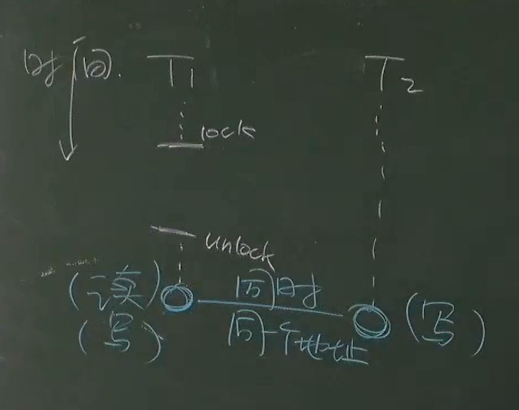 时间 T1 T2
lock
unlock
(读) 同时
(写) 同一个地址 (写)